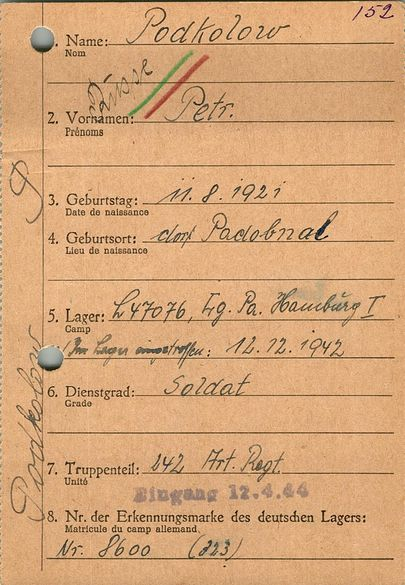 152
1. Name: Podkolow
Nom
Russe
2. Vornamen: Petr.
Prénoms
3. Geburtstag: 11.8.1921
Date de naissance
4. Geburtsort: dorf Padobnal
Lieu de naissance
5. Lager: 47076, Lg. Pa. Hamburg I
Camp
(Im Lager eingetroffen: 12.12.1942
6. Dienstgrad: Soldat
Grade
7. Truppenteil: 242 Art. Regt.
Unité
Eingang 12.4.44
8. Nr. der Erkennungsmarke des deutschen Lagers:
Matricule du camp allemand
Nr. 8600 (323)
Podkolow P